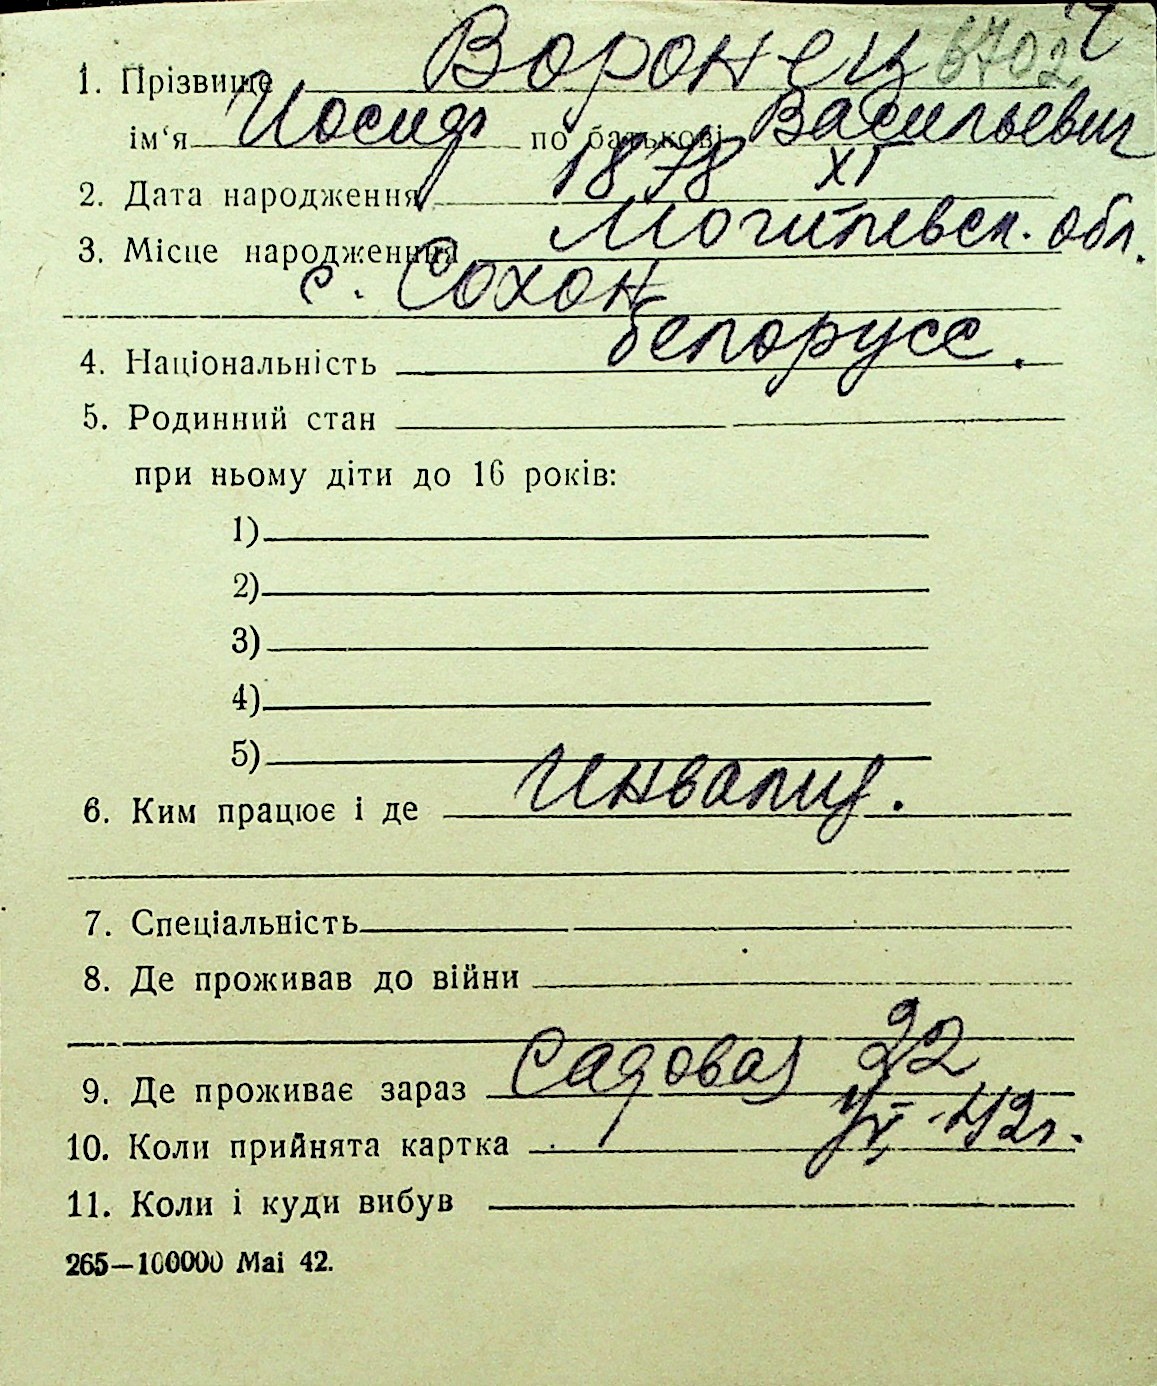 1. Прізвище Воронец 6702
ім‘я Иосиф по батькові Васильевич
2. Дата народження 1878 XI
3. Місце народження Могилевск. обл.
с. Сохон
4. Національність белорусс.
5. Родинний стан
при ньому діти до 16 років:
1)
2)
3)
4)
5)
6. Ким працює і де Инвалид.
7. Спеціальність
8. Де проживав до війни
9. Де проживає зараз Садовая 22
10. Коли прийнята картка 42г.
11. Коли і куди вибув
265—100000 Mai 42.